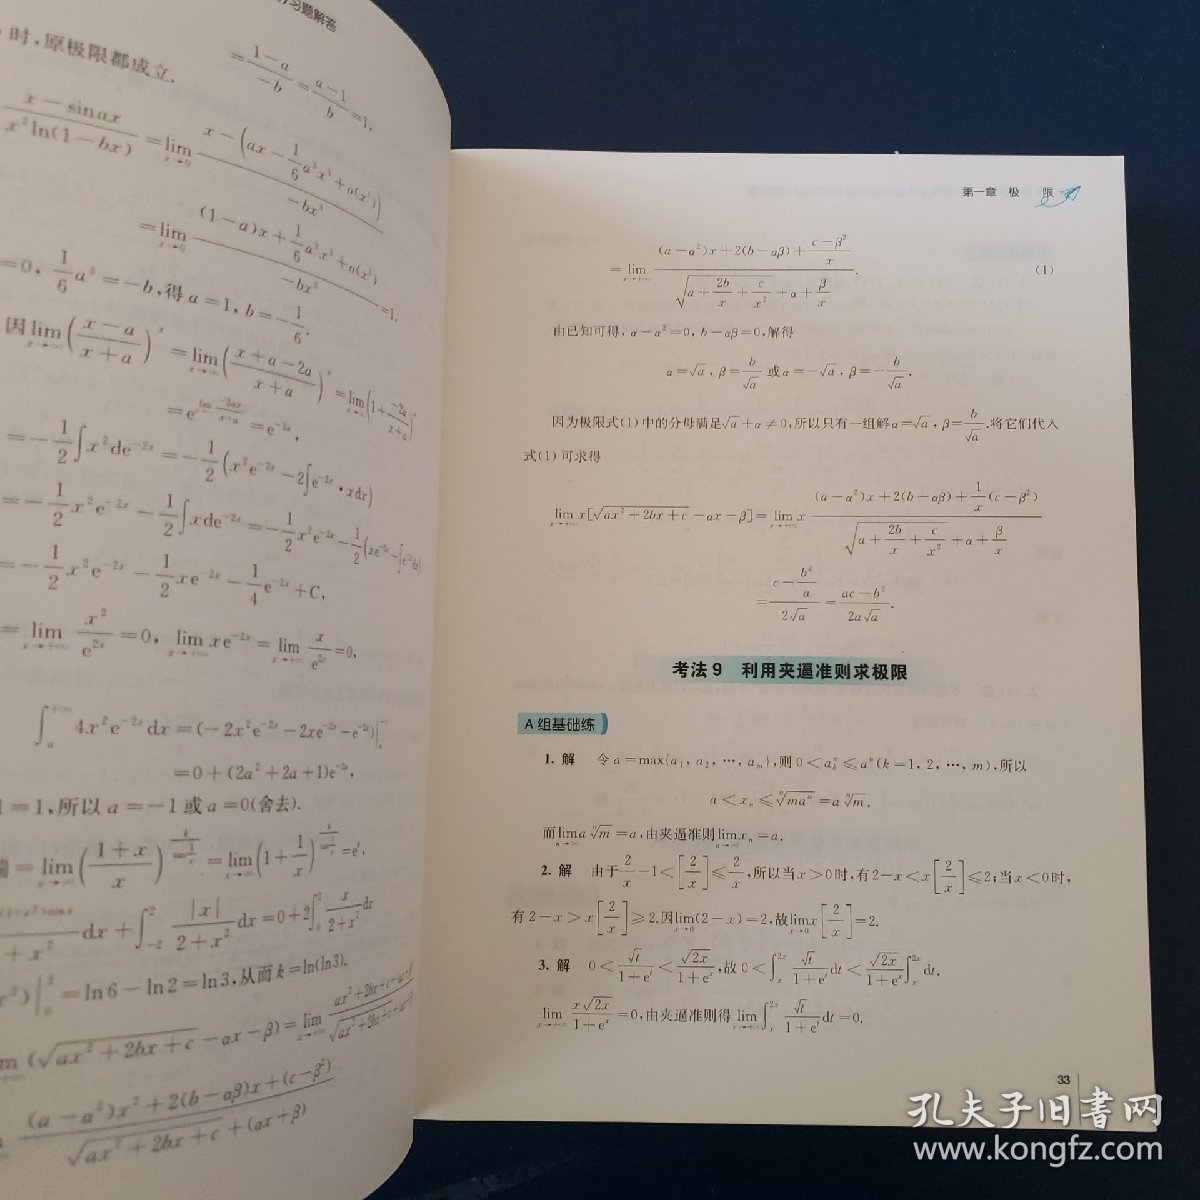 习题解答
时,原极限都成立.
=\frac{1-a}{-b}=\frac{a-1}{b}=1,
\frac{x-\sin ax}{x^2\ln(1-bx)}=\lim_{x→0}\frac{x-(ax-\frac{1}{6}a^3x^3+o(x^3))}{-bx^3}
=\lim_{x→0}\frac{(1-a)x+\frac{1}{6}a^3x^3+o(x^3)}{-bx^3}=1,
=0, \frac{1}{6}a^3=-b,得 a=1, b=-\frac{1}{6}.
因\lim_{x→∞}(\frac{x-a}{x+a})^x=\lim_{x→∞}(\frac{x+a-2a}{x+a})^x=\lim_{x→∞}(1+\frac{-2a}{x+a})^x
=e^{\lim\frac{-2ax}{x+a}}=e^{-2a},
=-\frac{1}{2}∫x^2de^{-2x}=-\frac{1}{2}(x^2e^{-2x}-2∫e^{-2x}·xdx)
=-\frac{1}{2}x^2e^{-2x}-\frac{1}{2}∫xde^{-2x}=-\frac{1}{2}x^2e^{-2x}-\frac{1}{2}(xe^{-2x}-∫e^{-2x}dx)
=-\frac{1}{2}x^2e^{-2x}-\frac{1}{2}xe^{-2x}-\frac{1}{4}e^{-2x}+C,
=\lim_{x→+∞}\frac{x^2}{e^{2x}}=0, \lim_{x→+∞}xe^{-2x}=\lim_{x→+∞}\frac{x}{e^{2x}}=0,
∫_a^{+∞}4x^2e^{-2x}dx=(-2x^2e^{-2x}-2xe^{-2x}-e^{-2x})|_a^{+∞}
=0+(2a^2+2a+1)e^{-2a},
1=1,所以 a=-1 或 a=0(舍去).
=\lim_{x→∞}(\frac{1+x}{x})=\lim_{x→∞}(1+\frac{1}{x})
dx+∫_{-2}^2\frac{|x|}{2+x^2}dx=0+2∫_0^2\frac{x}{2+x^2}dx
x^2)|_0^2=\ln6-\ln2=\ln3,从而 k=\ln(\ln3).
(\sqrt{ax^2+2bx+c}-αx-β)=\lim_{x→+∞}
\frac{(a-α^2)x^2+2(b-αβ)x+(c-β^2)}{\sqrt{ax^2+2bx+c}+(αx+β)}
第一章 极 限
=\lim_{x→+∞}\frac{(a-α^2)x+2(b-αβ)+\frac{c-β^2}{x}}{\sqrt{a+\frac{2b}{x}+\frac{c}{x^2}}+α+\frac{β}{x}}. (1)
由已知可得, a-α^2=0, b-αβ=0,解得
α=\sqrt{a}, β=\frac{b}{\sqrt{a}} 或 α=-\sqrt{a}, β=-\frac{b}{\sqrt{a}}.
因为极限式(1)中的分母满足\sqrt{a}+α≠0,所以只有一组解α=\sqrt{a}, β=\frac{b}{\sqrt{a}}.将它们代入
式(1)可求得
\lim_{x→+∞}x[\sqrt{ax^2+2bx+c}-αx-β]=\lim_{x→+∞}x\frac{(a-α^2)x+2(b-αβ)+\frac{1}{x}(c-β^2)}{\sqrt{a+\frac{2b}{x}+\frac{c}{x^2}}+α+\frac{β}{x}}
=\frac{c-\frac{b^2}{a}}{2\sqrt{a}}=\frac{ac-b^2}{2a\sqrt{a}}.
考法 9 利用夹逼准则求极限
A 组基础练
1. 解 令 a=max(a_1, a_2, …, a_m),则 0<a_k^n≤a^n(k=1, 2, …, m),所以
a<x_n≤\sqrt[n]{ma^n}=a\sqrt[n]{m}.
而\lim_{n→∞}a\sqrt[n]{m}=a,由夹逼准则\lim_{n→∞}x_n=a.
2. 解 由于\frac{2}{x}-1<[\frac{2}{x}]≤\frac{2}{x},所以当 x>0 时,有 2-x<x[\frac{2}{x}]≤2;当 x<0 时,
有 2-x>x[\frac{2}{x}]≥2.因\lim_{x→0}(2-x)=2,故\lim_{x→0}x[\frac{2}{x}]=2.
3. 解 0<\frac{\sqrt{t}}{1+e^t}<\frac{\sqrt{2x}}{1+e^x},故 0<∫_x^{2x}\frac{\sqrt{t}}{1+e^t}dt<\frac{\sqrt{2x}}{1+e^x}∫_x^{2x}dt.
\lim_{x→+∞}\frac{x\sqrt{2x}}{1+e^x}=0,由夹逼准则得\lim_{x→+∞}∫_x^{2x}\frac{\sqrt{t}}{1+e^t}dt=0.
33
孔夫子旧书网
www.kongfz.com